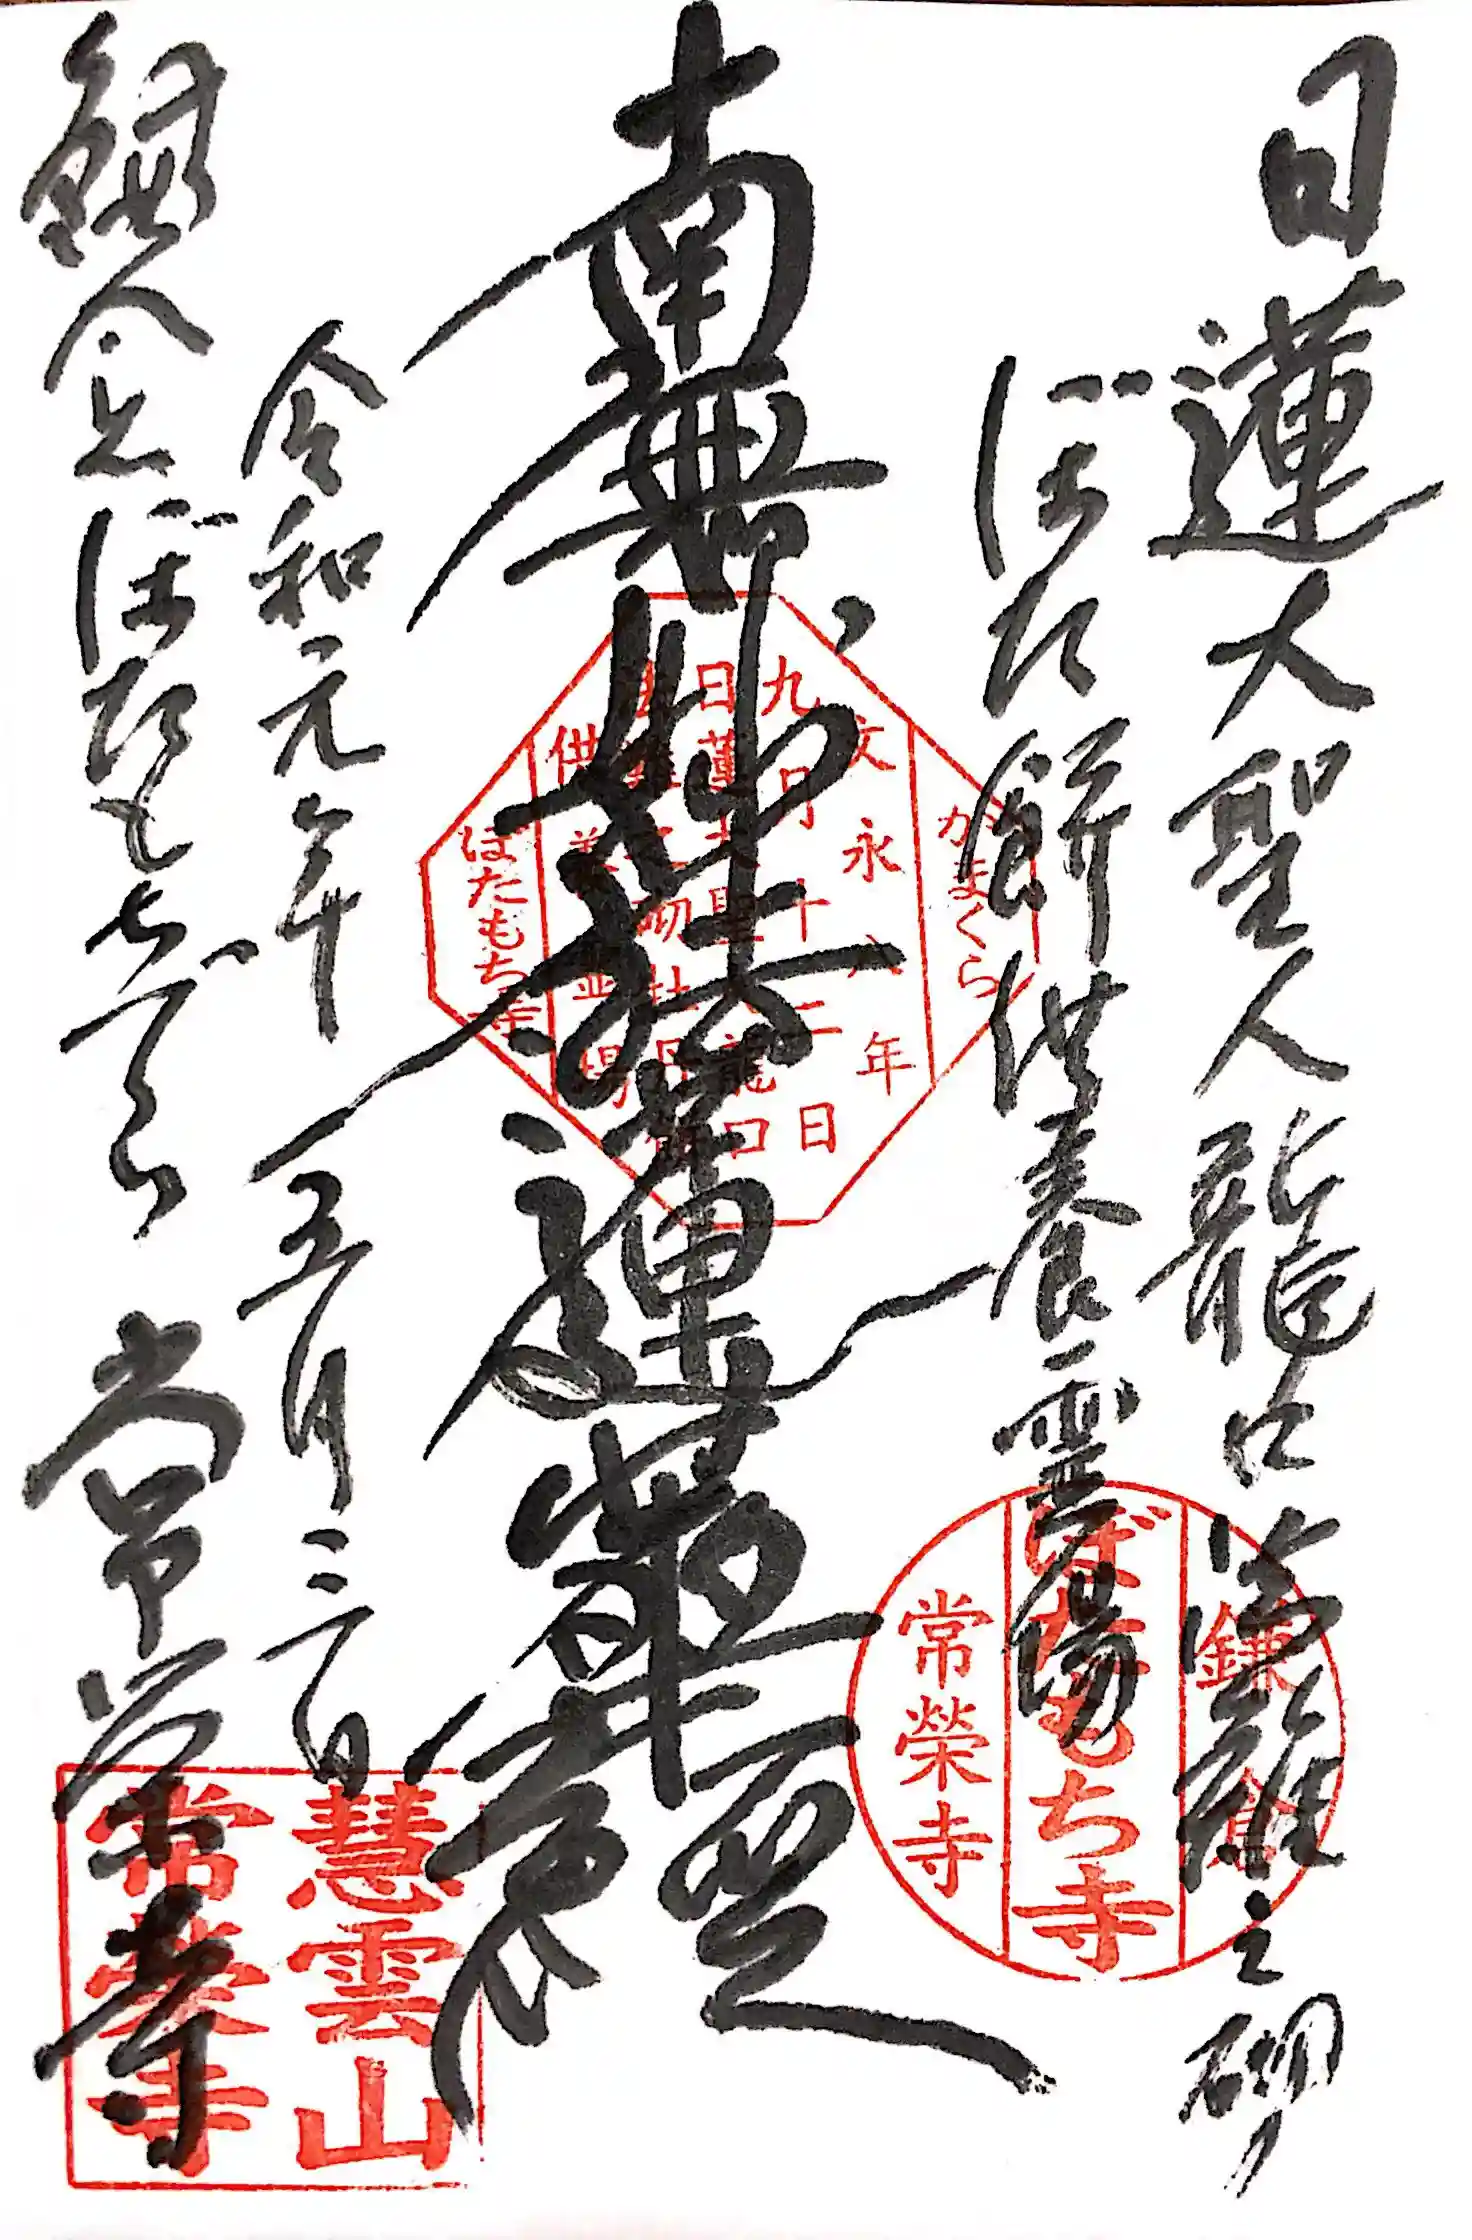 日蓮大聖人龍口法難之砌
ぼた餅供養霊場
南無妙法蓮華経
令和元年五月三日
鎌倉
ぼたもちでら
常栄寺
かまくら
文永八年
九月十二日
日蓮大聖人龍口
法難之砌牡丹餅
供養霊場
ぼたもち寺
鎌倉
ぼたもち寺
常榮寺
慧雲山
常榮寺